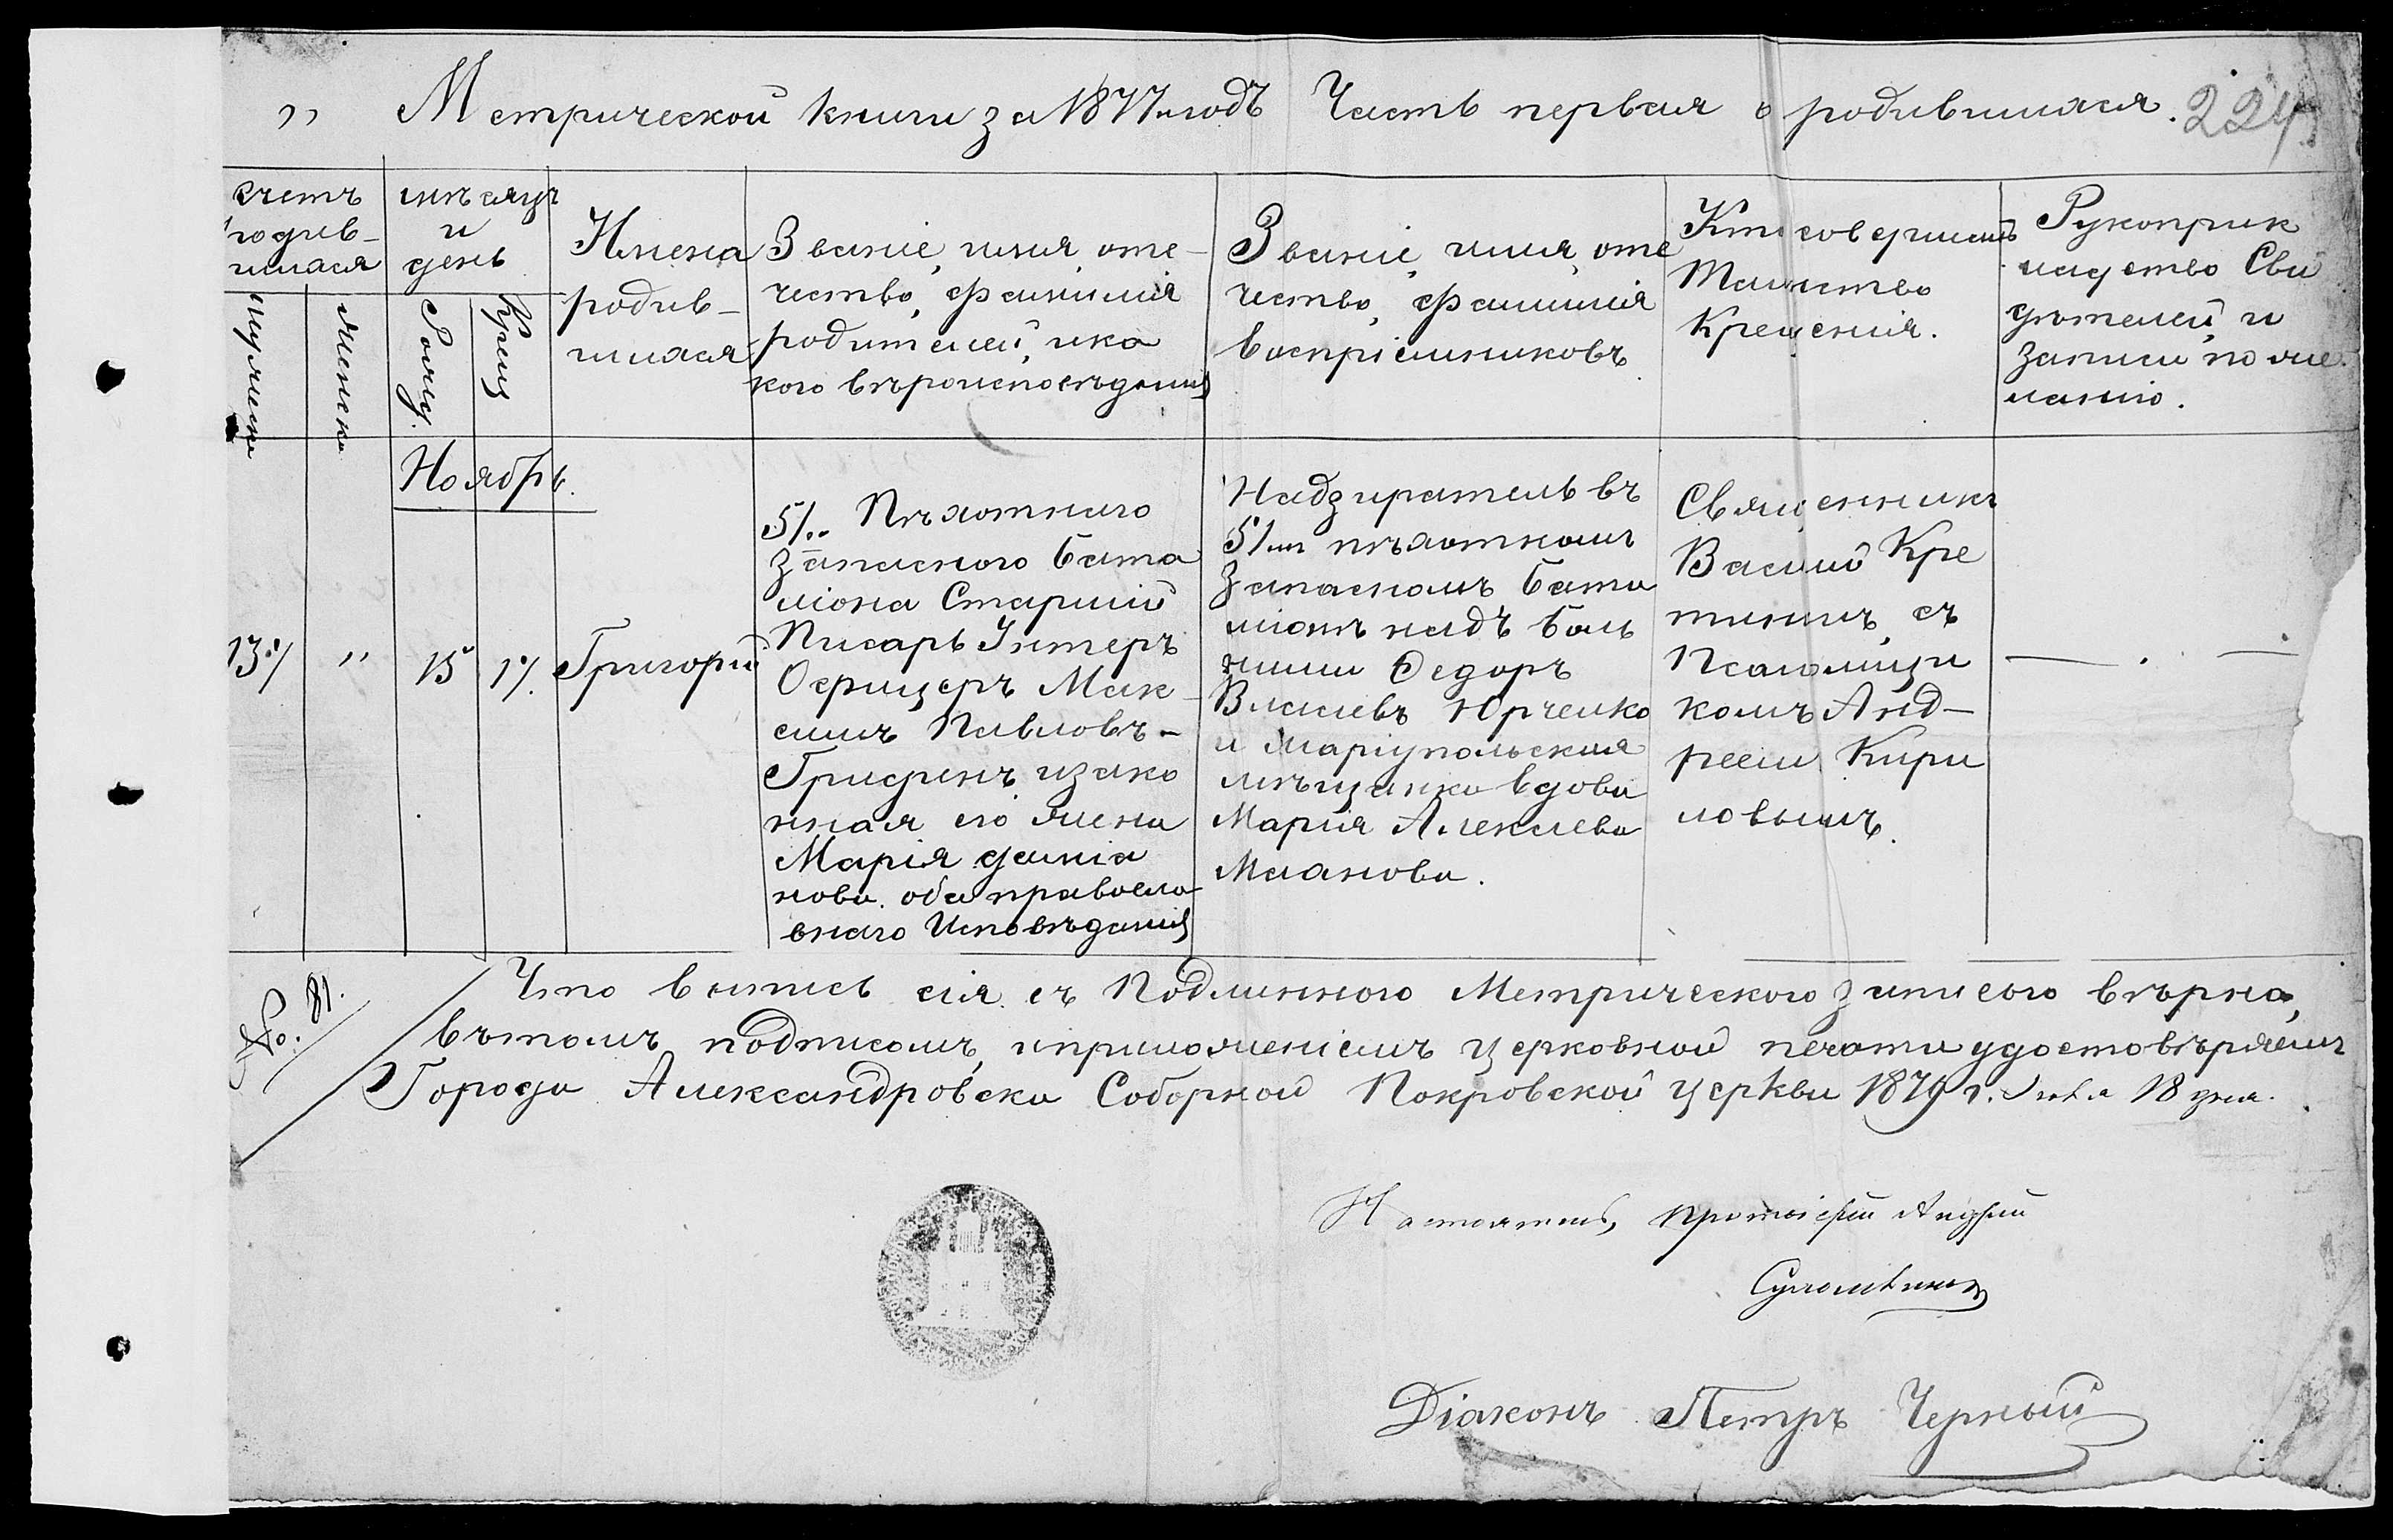 „ Метрической книги за 1877 годъ Часть первая о родившихся. 224
счетъ
родив-
шихся
мѣсяцъ
и
день
мужеска
женска
Рожд.
Крещ
Имена
родив-
шихся
Званіе, имя, оте-
чество, фамилія
родителей, и ка
кого вѣроисповѣданія
Званіе, имя, оте
чество, фамилія
воспріемниковъ
Кто совершилъ
Таинство
Крещенія.
Рукоприк
ладство Сви
дѣтелей и
записи по же
ланію.
Ноябрь.
13
„
15
17.
Григорій
51го Пѣхотнаго
запаснаго бата
ліона Старшій
Писарь Унтеръ
Офицеръ Мак-
симъ Павловъ-
Гридинъ и зако
нная его жена
Марія Даміа
нова. оба правосла
внаго Исповѣданія
Надзиратель въ
51мъ пѣхотномъ
запасномъ бата
ліонѣ надъ боль
ными Федоръ
Власіевъ Юрченко
и Маріупольская
мѣщанка вдова
Марія Алексіева
Маланова.
Священникъ
Василій Кре
тининъ, съ
Псаломщи
комъ Анд-
реем Кири
ловымъ.
— . —
No. 81.
Что выпись сія съ Подлинного Метрического записого вѣрна,
въ томъ подписомъ, и приложеніемъ церковной печати удостовѣряемъ
Города Александровска Соборной Покровской церкви 1879 г. 18 дня.
Настоятель, протоіерей Андрей
Діаконъ Петръ Черный